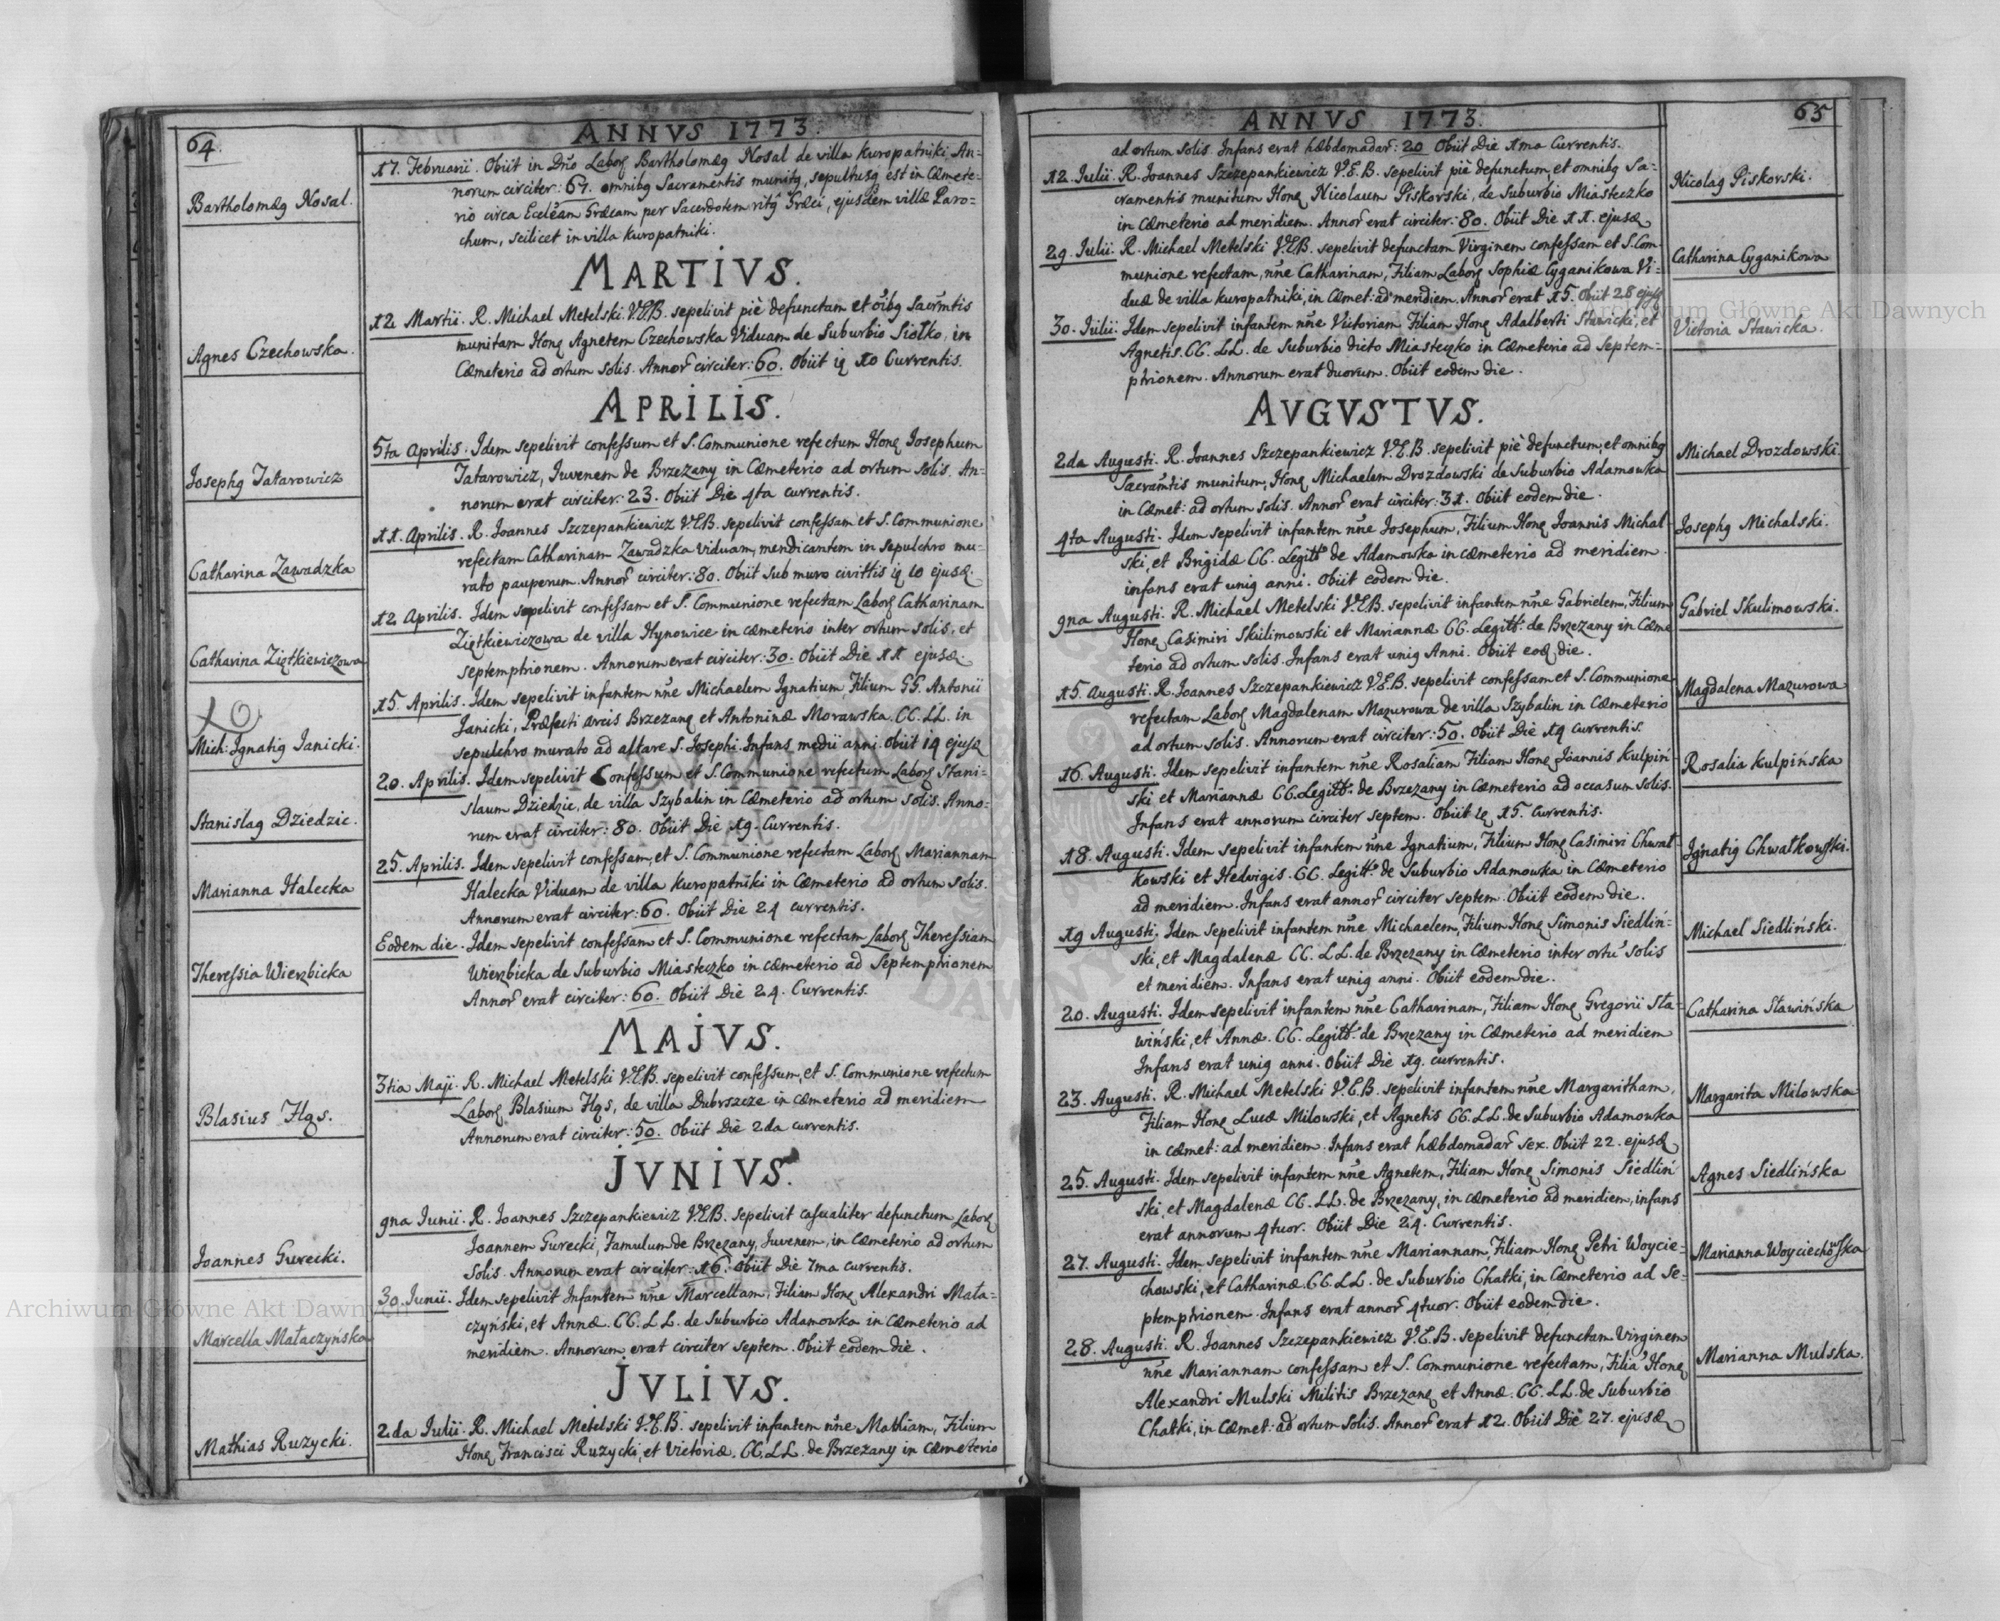 64.
ANNVS 1773.
Bartholomæꝯ Nosal.
17. Februarii. Obiit in Dño Laborˢ Bartholomæꝯ Nosal de villa Kuropatniki An-
norum circiter: 67. omnibꝯ Sacramentis munitꝯ, sepultusꝗ est in Cæmete-
rio circa Ecclēam Græcam per Sacerdotem ritꝯ Græci, ejusdem villæ Paro-
chum, scilicet in villa Kuropatniki.
MARTIVS.
Agnes Czechowska.
12 Martii. R. Michael Metelski V.E.B. sepelivit piè defunctam et oĩbꝯ Sacrm̃tis
munitam Honꝫ Agnetem Czechowska Viduam de Suburbio Siołko, in
Cæmeterio ad ortum solis. Annor̃ circiter: 60. Obiit iꝗ 10 Currentis.
APRILIS.
Josephꝯ Tatarowicz
5ta Aprilis. Idem sepelivit confessum et S. Communione refectum Honꝫ Josephum
Tatarowicz, Iuvenem de Brzezany in Cæmeterio ad ortum solis. An-
norum erat circiter: 23. Obiit Die 4ta currentis.
Catharina Zawadzka
11. Aprilis. R. Joannes Szczepankiewicz V.E.B. sepelivit confessam et S. Communione
refectam Catharinam Zawadzka Viduam, mendicantem in sepulchro mu-
rato pauperum. Annor̃ circiter: 80. Obiit sub muro civittis iꝗ 10 ejusꝫ
Catharina Ziętkiewiczowa
12 Aprilis. Idem sepelivit confessam et S. Communione refectam Laborˢ Catharinam
Ziętkiewiczowa de villa Hynowice in cæmeterio inter ortum solis, et
septemptrionem. Annorum erat circiter: 30. Obiit Die 11 ejusꝫ.
Mich: Ignatiꝯ Janicki.
15. Aprilis. Idem sepelivit infantem nñe Michaelem Ignatium, Filium GG. Antonii
Janicki, Præfecti arcis Brzezanꝫ et Antoninæ Morawska. CC. LL. in
sepulchro murato ad altare S. Josephi. Infans medii anni. Obiit 14 ejusꝫ
Stanislaꝯ Dziedzic.
20. Aprilis. Idem sepelivit Confessum et S. Communione refectum Laborˢ Stani-
slaum Dziedzic, de villa Szybalin in Cæmeterio ad ortum solis. Anno-
rum erat circiter: 80. Obiit Die 19. Currentis.
Marianna Halecka
25. Aprilis. Idem sepelivit confessam, et S. Communione refectam Laborˢ Mariannam
Halecka Viduam de villa Kuropatniki in Cæmeterio ad ortum solis.
Annorum erat circiter: 60. Obiit Die 24 currentis.
Theressia Wierzbicka
Eodem die. Idem sepelivit confessam et S. Communione refectam Laborˢ Theressiam
Wierzbicka de Suburbio Miasteczko in cæmeterio ad Septemptrionem
Annor̃ erat circiter: 60. Obiit Die 24. Currentis.
MAJVS.
Blasius Hąs.
3tia Maji. R. Michael Metelski V.E.B. sepelivit confessum, et S. Communione refectum
Laborˢ Blasium Hąs, de villa Dubrszcze in cæmeterio ad meridiem
Annorum erat circiter: 50. Obiit Die 2da currentis.
JVNIVS.
Joannes Gurecki.
9na Iunii. R. Joannes Szczepankiewicz V.E.B. sepelivit casualiter defunctum Laborˢ
Joannem Gurecki, Famulum de Brzezany, Juvenem, in Cæmeterio ad ortum
Solis. Annorum erat circiter: 16. Obiit Die 7ma currentis.
Marcella Małaczyńska
30. Iunii. Idem sepelivit Infantem nñe Marcellam, Filiam Honꝫ Alexandri Mała-
czyński, et Annæ. CC. LL. de Suburbio Adamowka in Cæmeterio ad
meridiem. Annorum erat circiter septem. Obiit eodem die.
JVLIVS.
Mathias Ruzycki.
2da Iulii. R. Michael Metelski V.E.B. sepelivit infantem nñe Mathiam, Filium
Honꝫ Francisci Ruzycki, et Victoriæ. CC. LL. de Brzezany in Cæmeterio
65
ANNVS 1773.
ad ortum solis. Infans erat hæbdomadar̃: 20 Obiit Die 1ma Currentis.
12. Iulii. R. Joannes Szczepankiewicz V.E.B. sepelivit piè defunctum, et omnibꝯ Sa-
cramentis munitum Honꝫ Nicolaum Piskorski, de Suburbio Miasteczko
in Cæmeterio ad meridiem. Annor̃ erat circiter: 80. Obiit Die 11. ejusꝫ
Nicolaꝯ Piskorski.
29. Iulii. R. Michael Metelski V.E.B. sepelivit defunctam Virginem confessam et S. Com-
munione refectam, nñe Catharinam, Filiam Laborˢ Sophiæ Cyganikowa Vi-
duæ de villa Kuropatniki, in Cæmet: ad meridiem. Annor̃ erat 15. Obiit 28 ejusꝫ
Catharina Cyganikowa
30. Iulii. Idem sepelivit infantem nñe Victoriam Filiam Honꝫ Adalberti Stawicki, et
Agnetis. CC. LL. de Suburbio dicto Miasteczko in Cæmeterio ad Septem-
ptrionem. Annorum erat duorum. Obiit eodem die.
Victoria Stawicka.
AVGVSTVS.
2da Augusti. R. Joannes Szczepankiewicz V.E.B. sepelivit piè defunctum, et omnibꝯ
Sacram̃tis munitum, Honꝫ Michaelem Drozdowski de Suburbio Adamowka
in Cæmet: ad ortum solis. Annor̃ erat circiter: 31. Obiit eodem die.
Michael Drozdowski.
4ta Augusti. Idem sepelivit infantem nñe Josephum, Filium Honꝫ Joannis Michal-
ski, et Brigidæ CC. Legitt: de Adamowka in cæmeterio ad meridiem.
infans erat uniꝯ anni. Obiit eodem die.
Josephꝯ Michalski.
9na Augusti. R. Michael Metelski V.E.B. sepelivit infantem nñe Gabrielem, Filium
Honꝫ Casimiri Skulimowski et Mariannæ CC. Legitt: de Brzezany in Cæme
terio ad ortum solis. Infans erat uniꝯ Anni. Obiit eoꝫ die.
Gabriel Skulimowski.
15. Augusti. R. Joannes Szczepankiewicz V.E.B. sepelivit confessam et S. Communione
refectam Laborˢ Magdalenam Mazurowa de villa Szybalin in Cæmeterio
ad ortum solis. Annorum erat circiter: 50. Obiit Die 14 Currentis.
Magdalena Mazurowa
16. Augusti. Idem sepelivit infantem nñe Rosaliam Filiam Honꝫ Joannis Kulpiń
ski et Mariannæ CC. Legitt: de Brzezany in Cæmeterio ad occasum solis.
Infans erat annorum circiter septem. Obiit iꝗ 15. Currentis.
Rosalia Kulpińska
18. Augusti. Idem sepelivit infantem nñe Ignatium, Filium Honꝫ Casimiri Chwał-
kowski et Hedvigis. CC. Legitt: de Suburbio Adamowka in Cæmeterio
ad meridiem. Infans erat annor̃ circiter septem. Obiit eodem die.
Ignatiꝯ Chwałkowski.
19 Augusti, Idem sepelivit infantem nñe Michaelem, Filium Honꝫ Simonis Siedliń-
ski, et Magdalenæ CC. LL. de Brzezany in Cæmeterio inter ortũ solis
et meridiem. Infans erat uniꝯ anni. Obiit eodem die.
Michael Siedliński.
20. Augusti. Idem sepelivit infantem nñe Catharinam, Filiam Honꝫ Gregorii Sła-
wiński, et Annæ. CC. Legitt: de Brzezany in Cæmeterio ad meridiem
Infans erat uniꝯ anni. Obiit Die 19. currentis.
Catharina Sławińska
23. Augusti. R. Michael Metelski V.E.B. sepelivit infantem nñe Margaritham,
Filiam Honꝫ Lucæ Milowski, et Agnetis CC. LL. de Suburbio Adamowka
in cæmet: ad meridiem. Infans erat hæbdomadar̃ sex. Obiit 22. ejusꝫ
Margarita Milowska
25. Augusti. Idem sepelivit infantem nñe Agnetem, Filiam Honꝫ Simonis Siedliń
ski, et Magdalenæ CC. LL. de Brzezany, in cæmeterio ad meridiem, infans
erat annorum 4tuor. Obiit Die 24. Currentis.
Agnes Siedlińska
27. Augusti. Idem sepelivit infantem nñe Mariannam, Filiam Honꝫ Petri Woycie-
chowski, et Catharinæ. CC. LL. de Suburbio Chatki, in Cæmeterio ad Se-
ptemptrionem. Infans erat annor̃ 4tuor. Obiit eodem die.
Marianna Woyciechowska
28. Augusti. R. Joannes Szczepankiewicz V.E.B. sepelivit defunctam Virginem
nñe Mariannam confessam et S. Communione refectam, Filiã Honꝫ
Alexandri Mulski Militis Brzezanꝫ et Annæ. CC. LL. de Suburbio
Chatki, in Cæmet: ad ortum solis. Annor̃ erat 12. Obiit Die 27. ejusꝫ
Marianna Mulska.
Archiwum Główne Akt Dawnych
Archiwum Główne Akt Dawnych